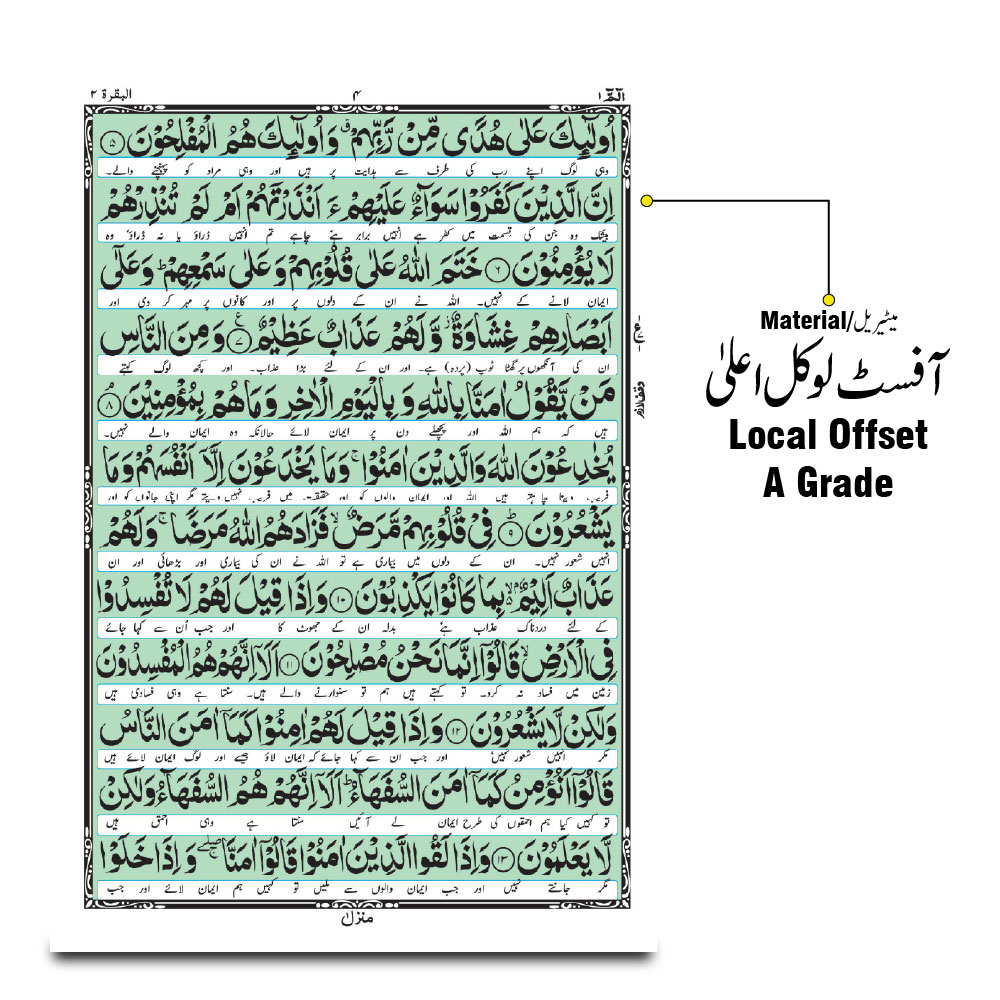 الٓمّٓ ۱
۴
البقرة ۲
اُولٰٓئِكَ عَلٰى هُدًى مِّنْ رَّبِّهِمْ ۗ وَ اُولٰٓئِكَ هُمُ الْمُفْلِحُوْنَ ۝۵
وہی لوگ اپنے رب کی طرف سے ہدایت پر ہیں اور وہی مراد کو پہنچنے والے۔
اِنَّ الَّذِيْنَ كَفَرُوْا سَوَآءٌ عَلَيْهِمْ ءَ اَنْذَرْتَهُمْ اَمْ لَمْ تُنْذِرْهُمْ
بیشک وہ جن کی قسمت میں کفر ہے انہیں برابر ہے چاہے تم انہیں ڈراؤ یا نہ ڈراؤ وہ
لَا يُؤْمِنُوْنَ ۝۶ خَتَمَ اللّٰهُ عَلٰى قُلُوْبِهِمْ وَ عَلٰى سَمْعِهِمْ ؕ وَ عَلٰٓى
ایمان لانے کے نہیں۔ اللہ نے ان کے دلوں پر اور کانوں پر مہر کر دی اور
اَبْصَارِهِمْ غِشَاوَةٌ ؗ وَّ لَهُمْ عَذَابٌ عَظِيْمٌ ۝۷ وَ مِنَ النَّاسِ
ان کی آنکھوں پر گھٹا ٹوپ (پردہ) ہے۔ اور ان کے لئے بڑا عذاب۔ اور کچھ لوگ کہتے
مَنْ يَّقُوْلُ اٰمَنَّا بِاللّٰهِ وَ بِالْيَوْمِ الْاٰخِرِ وَ مَا هُمْ بِمُؤْمِنِيْنَ ۝۸
ہیں کہ ہم اللہ اور پچھلے دن پر ایمان لائے حالانکہ وہ ایمان والے نہیں۔
يُخٰدِعُوْنَ اللّٰهَ وَ الَّذِيْنَ اٰمَنُوْا ۚ وَ مَا يَخْدَعُوْنَ اِلَّاۤ اَنْفُسَهُمْ وَ مَا
فریب دینا چاہتے ہیں اللہ اور ایمان والوں کو اور حقیقت میں فریب نہیں دیتے مگر اپنی جانوں کو اور
يَشْعُرُوْنَ ۝۹ فِيْ قُلُوْبِهِمْ مَّرَضٌ ۙ فَزَادَهُمُ اللّٰهُ مَرَضًا ۚ وَ لَهُمْ
انہیں شعور نہیں۔ ان کے دلوں میں بیماری ہے تو اللہ نے ان کی بیماری اور بڑھائی اور ان
عَذَابٌ اَلِيْمٌۢ ۙ۬ بِمَا كَانُوْا يَكْذِبُوْنَ ۝۱۰ وَ اِذَا قِيْلَ لَهُمْ لَا تُفْسِدُوْا
کے لئے دردناک عذاب ہے بدلہ ان کے جھوٹ کا اور جب اُن سے کہا جائے
فِي الْاَرْضِ ۙ قَالُوْۤا اِنَّمَا نَحْنُ مُصْلِحُوْنَ ۝۱۱ اَلَاۤ اِنَّهُمْ هُمُ الْمُفْسِدُوْنَ
زمین میں فساد نہ کرو۔ تو کہتے ہیں ہم تو سنوارنے والے ہیں۔ سنتا ہے وہی فسادی ہیں
وَ لٰكِنْ لَّا يَشْعُرُوْنَ ۝۱۲ وَ اِذَا قِيْلَ لَهُمْ اٰمِنُوْا كَمَاۤ اٰمَنَ النَّاسُ
مگر انہیں شعور نہیں اور جب ان سے کہا جائے کہ ایمان لاؤ جیسے اور لوگ ایمان لائے ہیں
قَالُوْۤا اَنُؤْمِنُ كَمَاۤ اٰمَنَ السُّفَهَآءُ ؕ اَلَاۤ اِنَّهُمْ هُمُ السُّفَهَآءُ وَ لٰكِنْ
تو کہیں کیا ہم احمقوں کی طرح ایمان لے آئیں سنتا ہے وہی احمق ہیں
لَّا يَعْلَمُوْنَ ۝۱۳ وَ اِذَا لَقُوا الَّذِيْنَ اٰمَنُوْا قَالُوْۤا اٰمَنَّا ۖۚ وَ اِذَا خَلَوْا
مگر جانتے نہیں اور جب ایمان والوں سے ملیں تو کہیں ہم ایمان لائے اور جب
منزل ۱
وقف لازم
Material/میٹیریل
آفسٹ لوکل اعلیٰ
Local Offset
A Grade